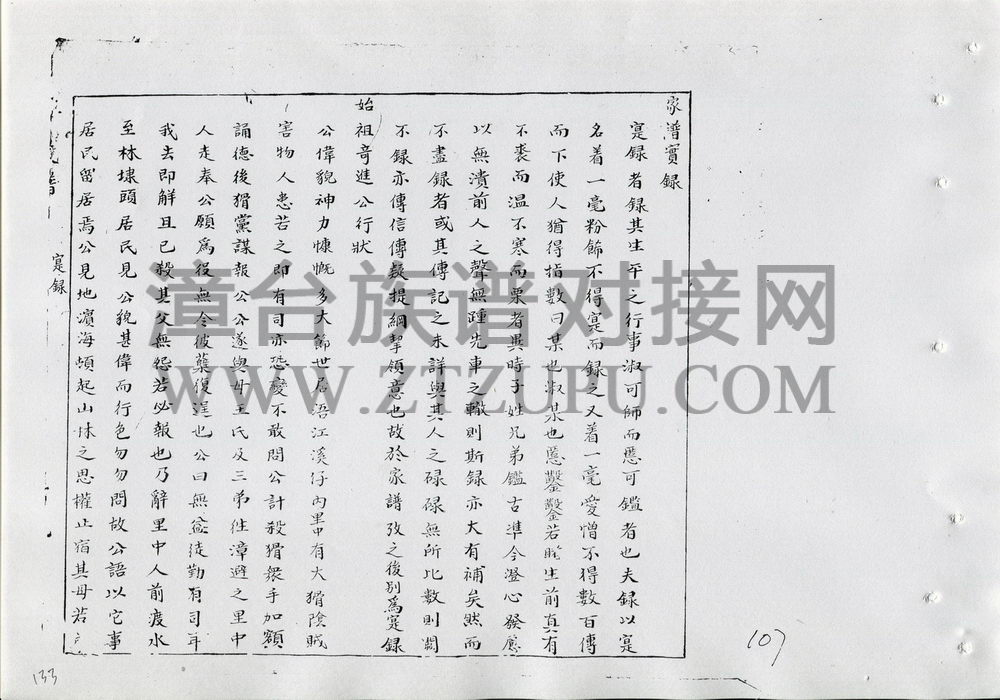 家譜實録
寔録者録其生平之行事淑可師而慝可鑑者也夫録以寔
名着一毫粉飾不得寔而録之又着一毫愛憎不得數百傳
而下使人猶得指數曰某也淑某也慝鑿鑿若脱生前真有
不裘而温不寒而栗者異時子姓兄弟鑑古準今澄心發應
以無潰前人之聲無踵先車之轍則斯録亦大有補矣然而
不盡録者或其傳記之未詳與其人之碌碌無所比數則闕
不録亦傳信傳疑提綱挈領意也故於家譜攷之後别為寔録
始祖奇進公行狀
公偉貌神力慷慨多大節世居浯江溪仔内里中有大猾陰賊
害物人患苦之即有司亦恐變不敢問公計殺猾衆手加額
誦德後猾黨謀報公公遂與母王氏及三弟往漳避之里中
人走奉公願為役無令彼蘖復逞也公曰無益徒勤有司耳
我去即解且已殺其父無怨若必報也乃辭里中人前渡水
至林埭頭居民見公貌甚偉而行色匆匆問故公語以它事
居民留居焉公見地濱海頓起山林之思權止宿其母若
寔録
漳台族谱对接网
WWW.ZTZUPU.COM
107
133